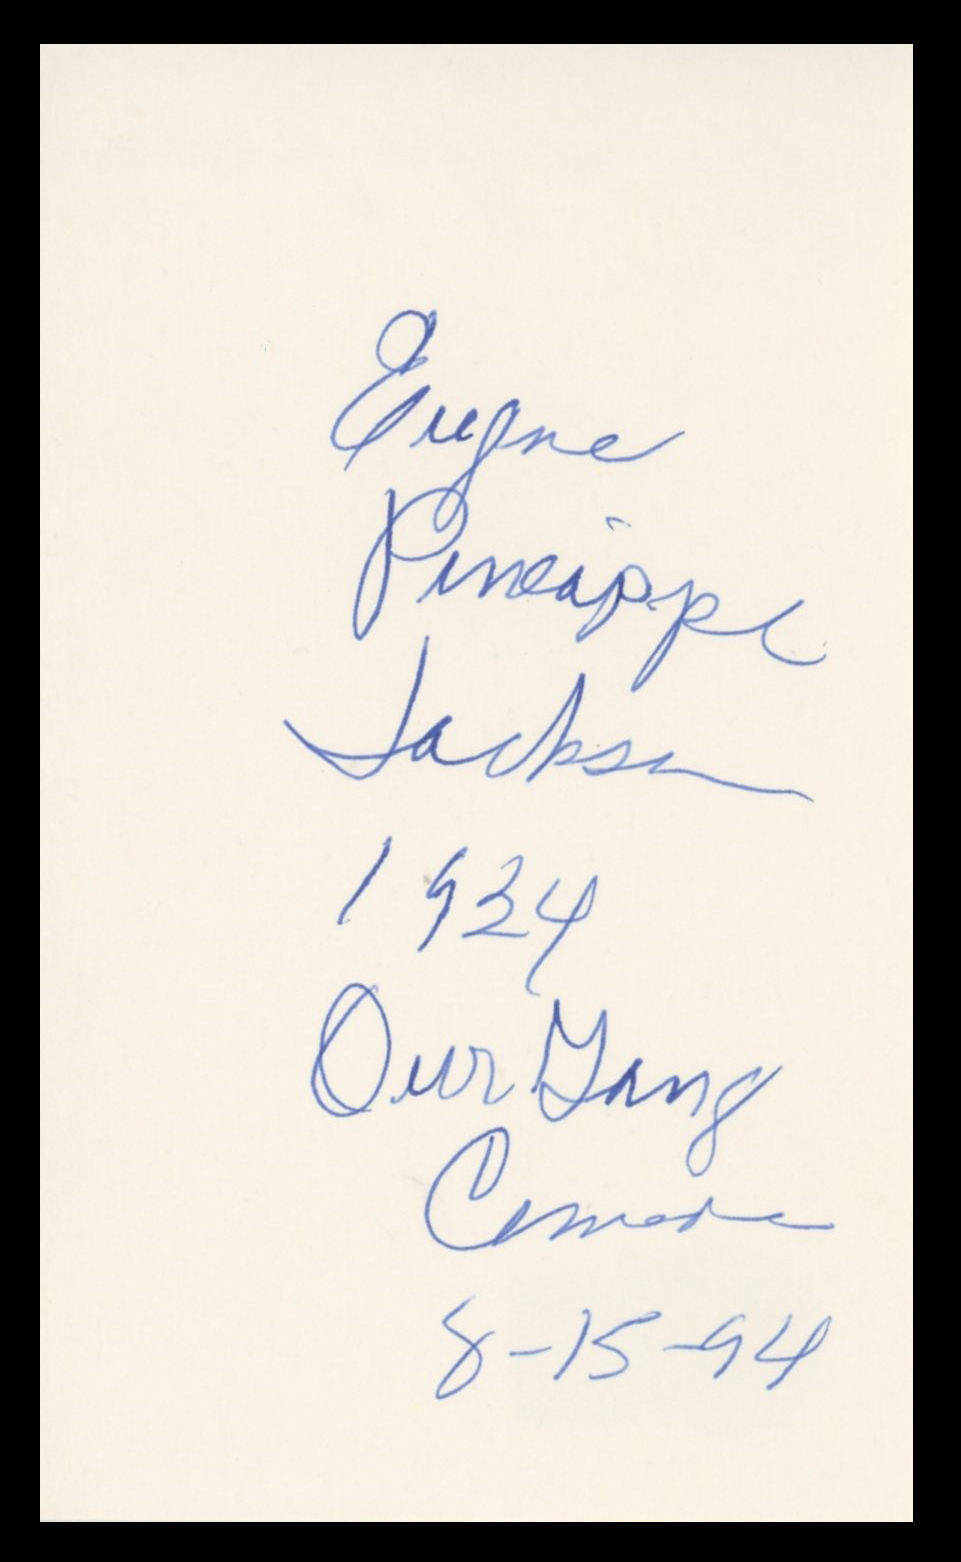 Eugene
Pineapple
Jackson
1924
Our Gang
Comedie
8-15-94